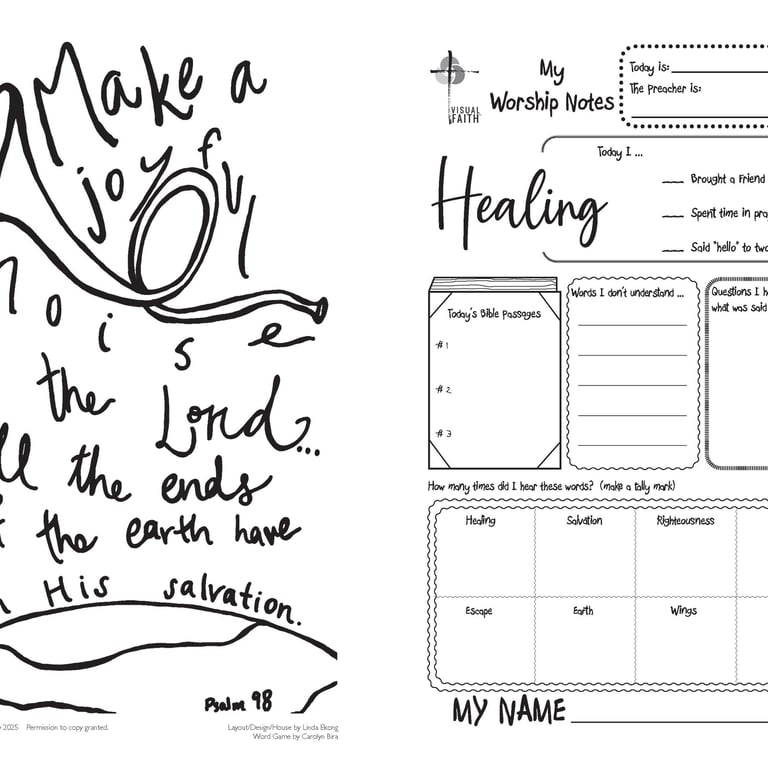 Make a
joyful
noise
the Lord...
the ends
the earth have
His salvation.
Psalm 98
2025 Permission to copy granted.
Layout/Design/House by Linda Ekong
Word Game by Carolyn Bira
VISUAL
FAITH
My
Worship Notes
Today is:
The preacher is:
Healing
Today I ...
Brought a Friend
Spent time in
Said "hello" to
Today's Bible Passages
#1
#2
#3
Words I don't understand ...
Questions I
what was said
How many times did I hear these words? (make a tally mark)
Healing Salvation Righteousness
Escape Earth Wings
MY NAME